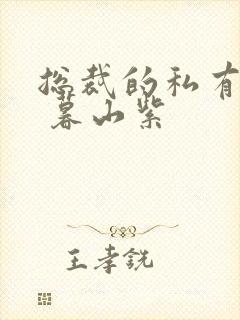 总裁的私有
暮山紫
王孝鋭